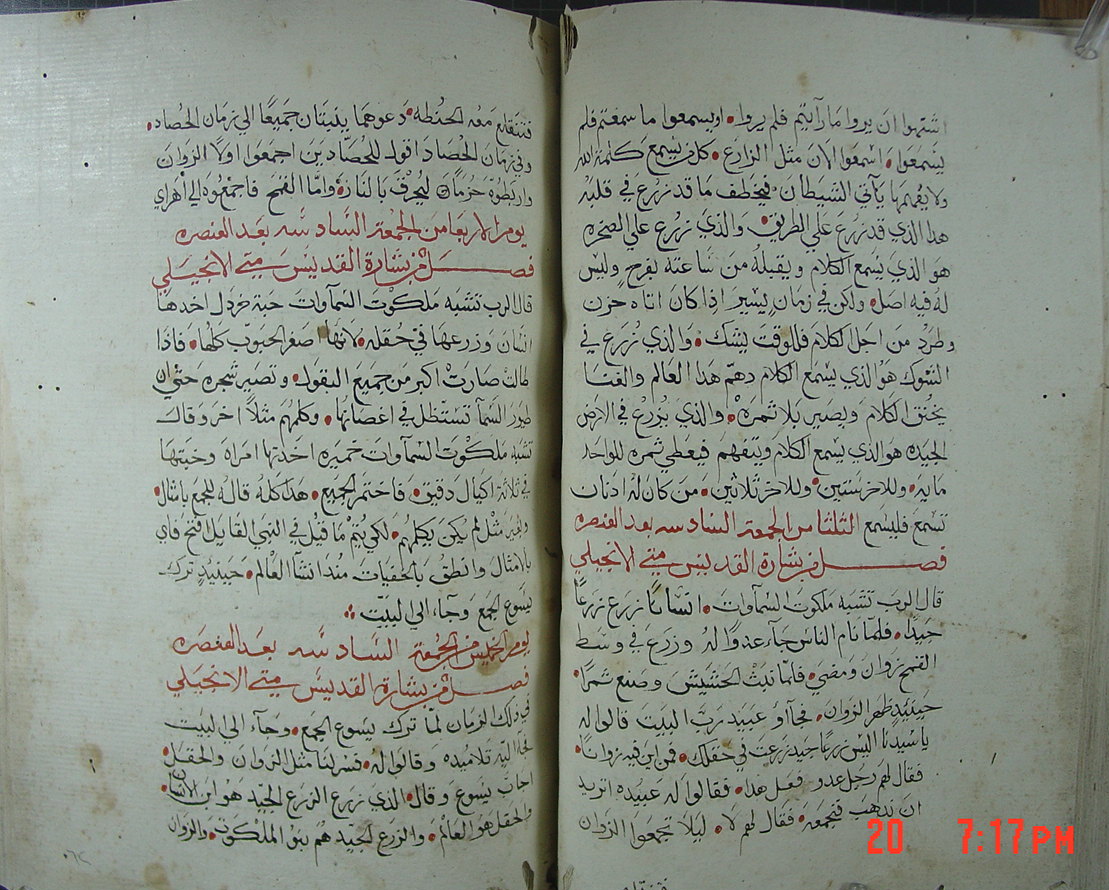 اشتهوا ان يروا ما رآيتم فلم يروا • او يسمعوا ما سمعتم فلم
يسمعوا • اسمعوا الان مثل الزارع • كل من يسمع كلمة الله
ولا يفهمها يآتي الشيطان فيخطف ما قد زرع في قلبه
هذا الذي قد زرع علي الطريق • والذي زرع علي الصخره
هو الذي يسمع الكلام ويقبله من ساعته بفرح وليس
له فيه اصل • ولكن في زمان يسير اذا كان اتاه حزن
وطرد من اجل الكلام فللوقت يشك • والذي زرع في
الشوك هو الذي يسمع الكلام وهم هذا العالم والغنا
يخنق الكلام ويصير بلا ثمره • والذي يزرع في الارض
الجيده هو الذي يسمع الكلام ويتفهم فيعطي ثمره للواحد
مايه • وللاخر ستين • وللاخر ثلاثين • من كان له اذنان
تسمع فليسمع الثلثا من الجمعه السادسه بعد العنصره
فصل من بشارة القديس متي الانجيلي
قال الرب تشبه ملكوت السمآوات • انسانا زرع زرعا
جيدا • فلما نام الناس جآء عدوا له وزرع في وسط
القمح زوان ومضي • فلما نبت الحشيش وصنع ثمرا •
حينيد ظهر الزوان • فجآوا عبيد رب البيت قالوا له
ياسيدنا اليس زرعا جيد زرعت في حقلك • فمن اين فيه زوانا •
فقال لهم رجل عدو فعل هذا • فقالوا له عبيده اتريد
ان نذهب فنجمعه • فقال لهم لا • ليلا تجمعوا الزوان
فتنقلع معه الحنطه • دعوهما ينبتان جميعا الي زمان الحصاد •
وفي زمان الحصاد اقول للحصادين اجمعوا اولا الزوان
واربطوه حزما لتحرق بالنار • واما القمح فاجمعوه الي اهراي
يوم الاربعا من الجمعه السادسه بعد العنصره
فصل من بشارة القديس متي الانجيلي
قال الرب تشبه ملكوت السمآوات حبة خردل اخدها
انسان وزرعها في حقله • لانها اصغر الحبوب كلها • فاذا
طالت صارت اكبر من جميع البقول • وتصير شجره حتي ان
طيور السمآ تستظل في اغصانها • وكلمهم مثلا اخر وقال
تشبه ملكوت السمآوات خميره اخدتها امراه وخبتها
في ثلاثة اكيال دقيق • فاختمر الجميع • هذا كله قاله للجمع بامثال •
وبغير مثل لم يكن يكلمهم • لكي يتم ما قيل في النبي القايل افتح فاي
بالامثال وانطق بالخفيات مند انشآ العالم • حينيد ترك
يسوع الجمع وجآء الي البيت
يوم الخميس من الجمعه السادسه بعد العنصره
فصل من بشارة القديس متي الانجيلي
في ذلك الزمان لما ترك يسوع الجمع • وجآء الي البيت
فجآ اليه تلاميده وقالوا له • فسر لنا مثل الزوان والحقل
اجاب يسوع وقال • الذي زرع الزرع الجيد هو ابن الانسان •
والحقل هو العالم • والزرع الجيد هم بنو الملكوت • والزوان
20 7:17 PM